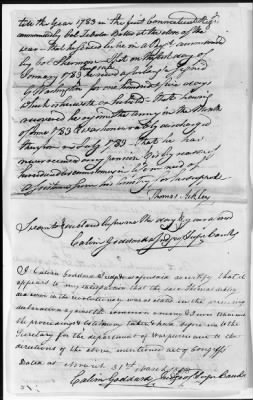 till the Year 1783 in the first Connecticut Regt.
commanded by Col. Zebulon Butler at the close of the
war — that he served in a Regt. commanded
by Col. Sherman — that on the first day of
January 1783 he received a furlough signed
G Washington for one hundred days
which is herewith exhibited — that having
recovered he joined the army in the Month
of June 1783 & was honorably discharged
therefrom in July 1783 — That he has
never received any pension & is by reason of
reduced circumstances in life in need of
assistance from his Country for support
Thomas
Sworn to & declared before me the day & year above
Calvin Goddard Judge of Supr. Court
I Calvin Goddard Judge as aforesaid certify that it
appears to my satisfaction that the said Thomas
did serve in the revolutionary war as stated in the preceding
declaration against the common enemy & I now transmit
the proceedings & testimony taken & had before me to the
Secretary for the department of war pursuant to the
directions of the above mentioned act of Congress
Dated at March 31st
Calvin Goddard Judge of Supr. Court